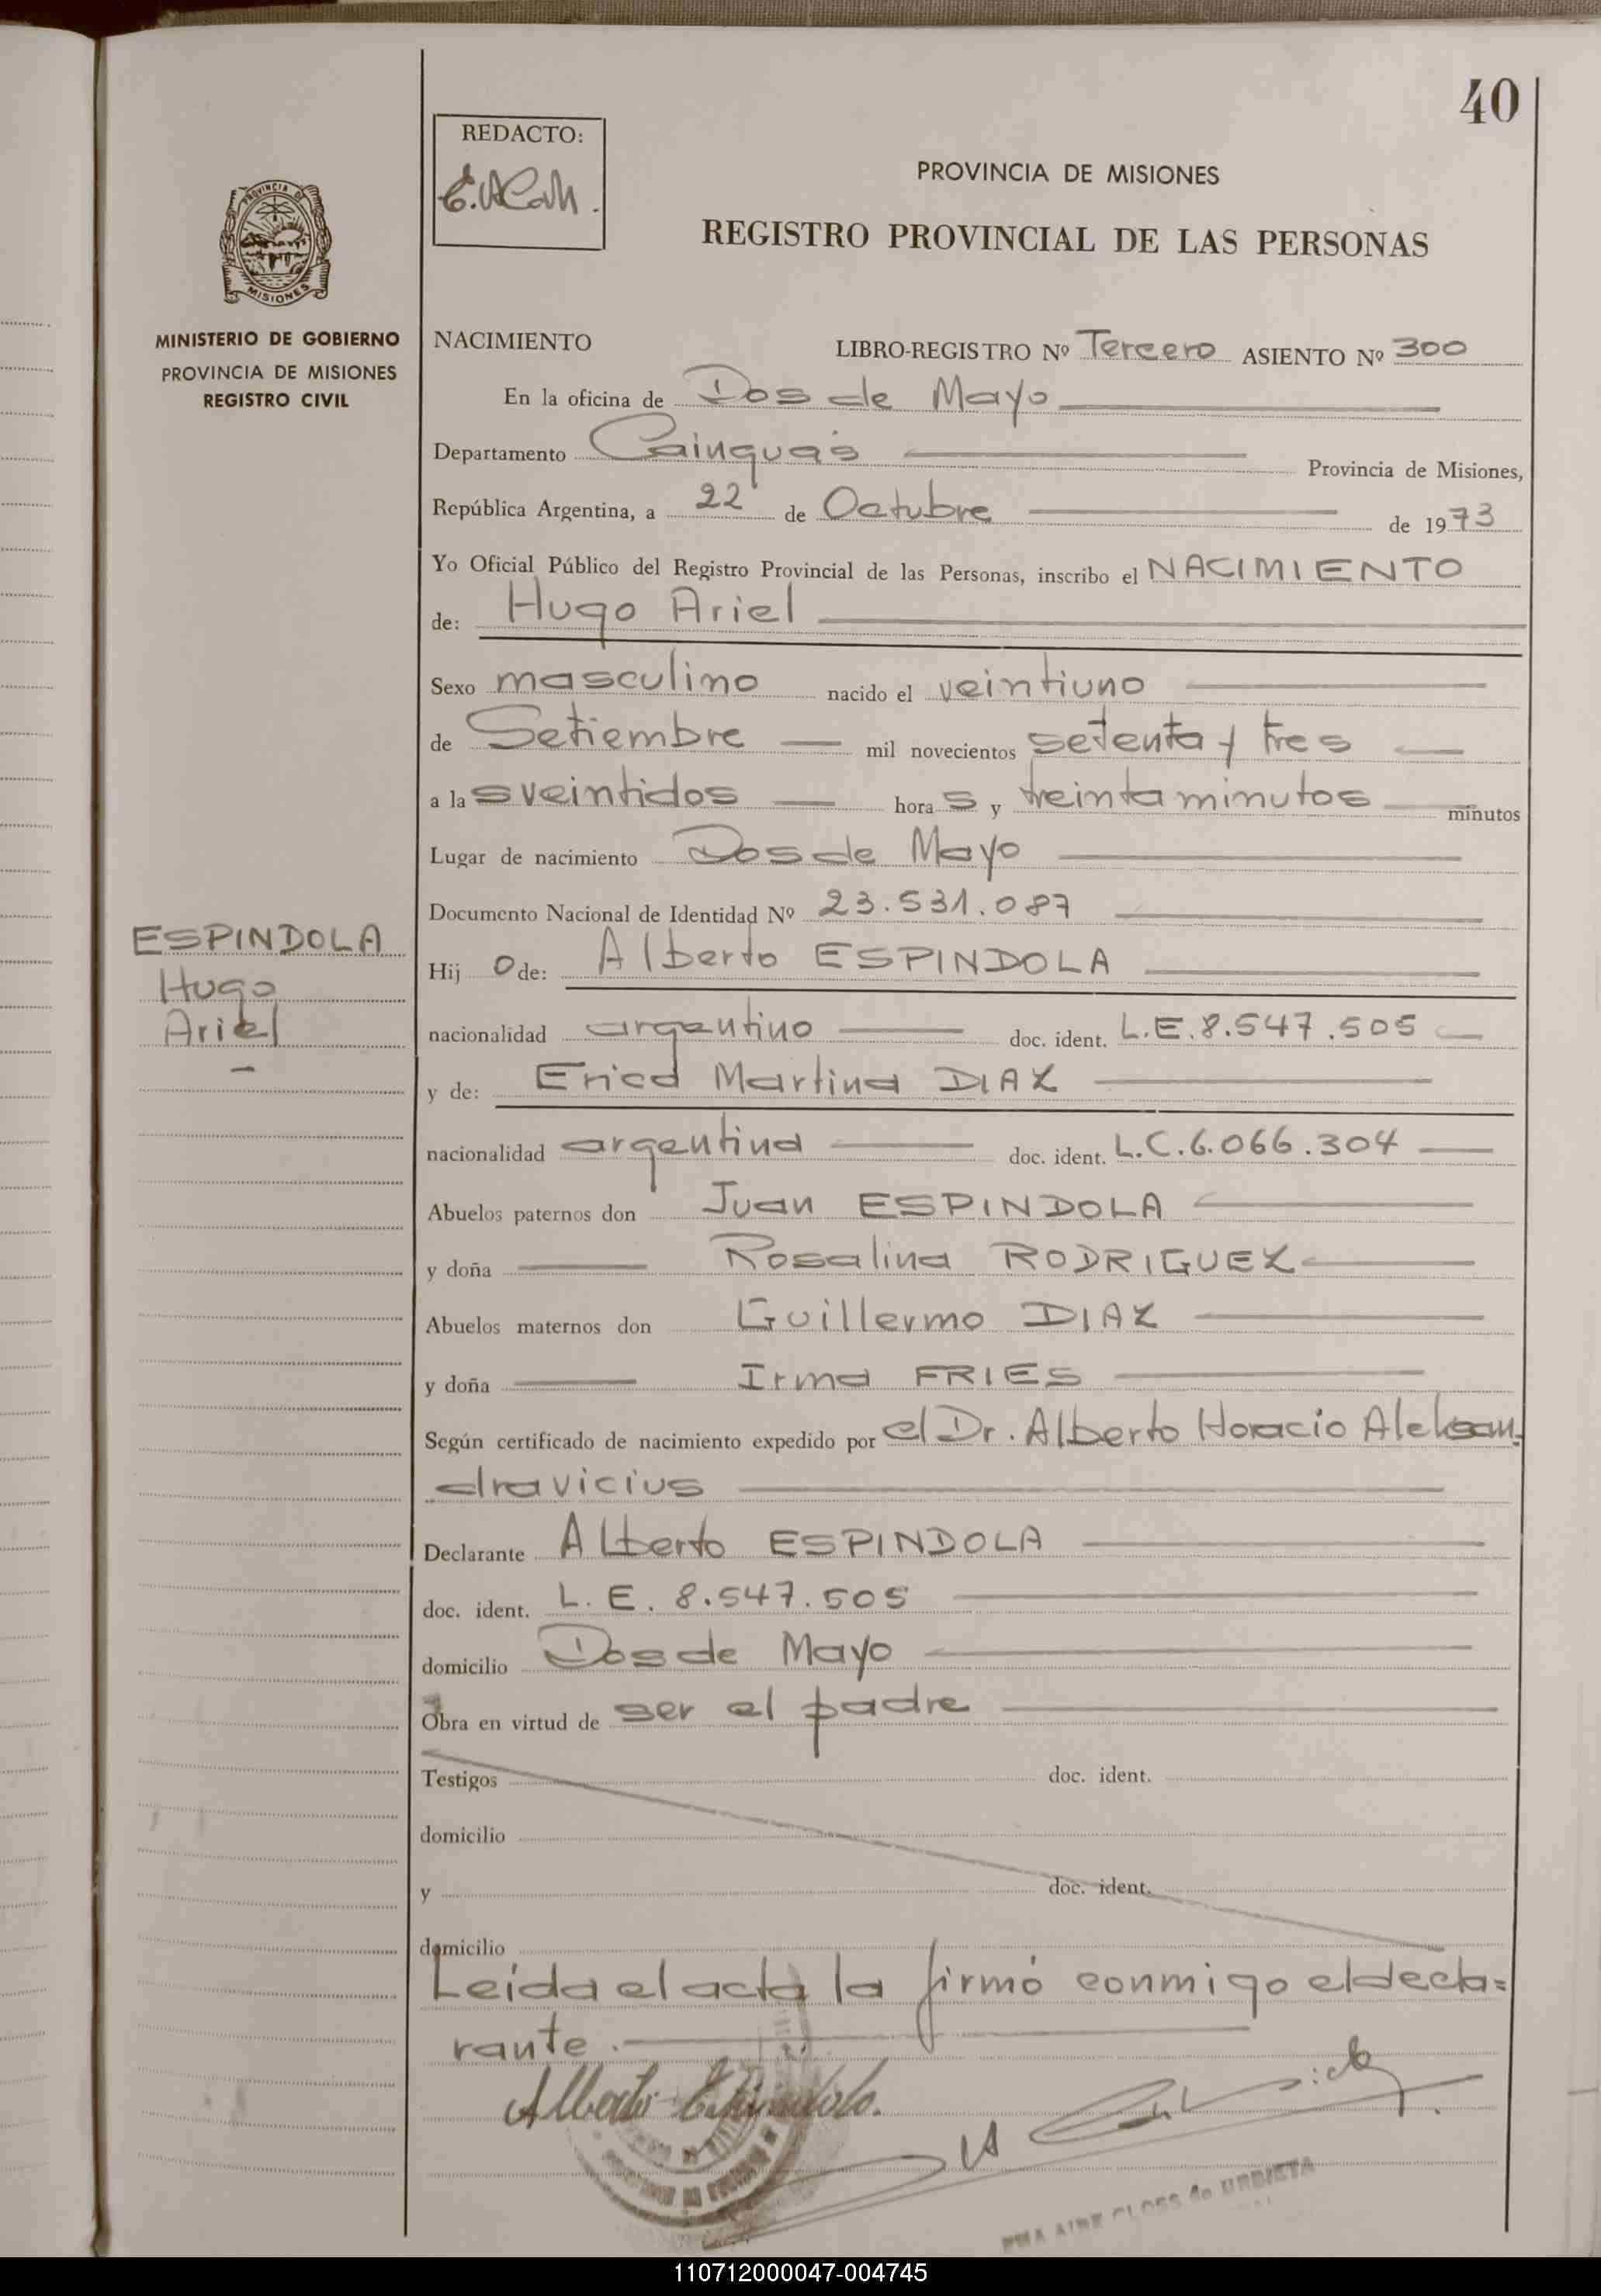 40
REDACTO:
PROVINCIA DE MISIONES
REGISTRO PROVINCIAL DE LAS PERSONAS
PROVINCIA DE
MISIONES
MINISTERIO DE GOBIERNO
PROVINCIA DE MISIONES
REGISTRO CIVIL
NACIMIENTO LIBRO-REGISTRO Nº Tercero ASIENTO Nº 300
En la oficina de Dos de Mayo
Departamento Cainguás Provincia de Misiones,
República Argentina, a 22 de Octubre de 1973
Yo Oficial Público del Registro Provincial de las Personas, inscribo el NACIMIENTO
de: Hugo Ariel
Sexo masculino nacido el veintiuno
de Setiembre mil novecientos setenta y tres
a las veintidos horas y treinta minutos minutos
Lugar de nacimiento Dos de Mayo
Documento Nacional de Identidad Nº 23.531.087
ESPINDOLA
Hugo
Ariel
Hijo de: Alberto ESPINDOLA
nacionalidad argentino doc. ident. L.E. 8.547.505
y de: Erica Martina DIAZ
nacionalidad argentina doc. ident. L.C. 6.066.304
Abuelos paternos don Juan ESPINDOLA
y doña Rosalina RODRIGUEZ
Abuelos maternos don Guillermo DIAZ
y doña Irma FRIES
Según certificado de nacimiento expedido por el Dr. Alberto Horacio Aleksan-
dravicius
Declarante Alberto ESPINDOLA
doc. ident. L. E. 8.547.505
domicilio Dos de Mayo
Obra en virtud de ser el padre
Testigos doc. ident.
domicilio
y doc. ident.
domicilio
Leída el acta la firmó conmigo el decla=
rante.
Alberto Espindola.
CLOSS de URBIETA
110712000047-004745